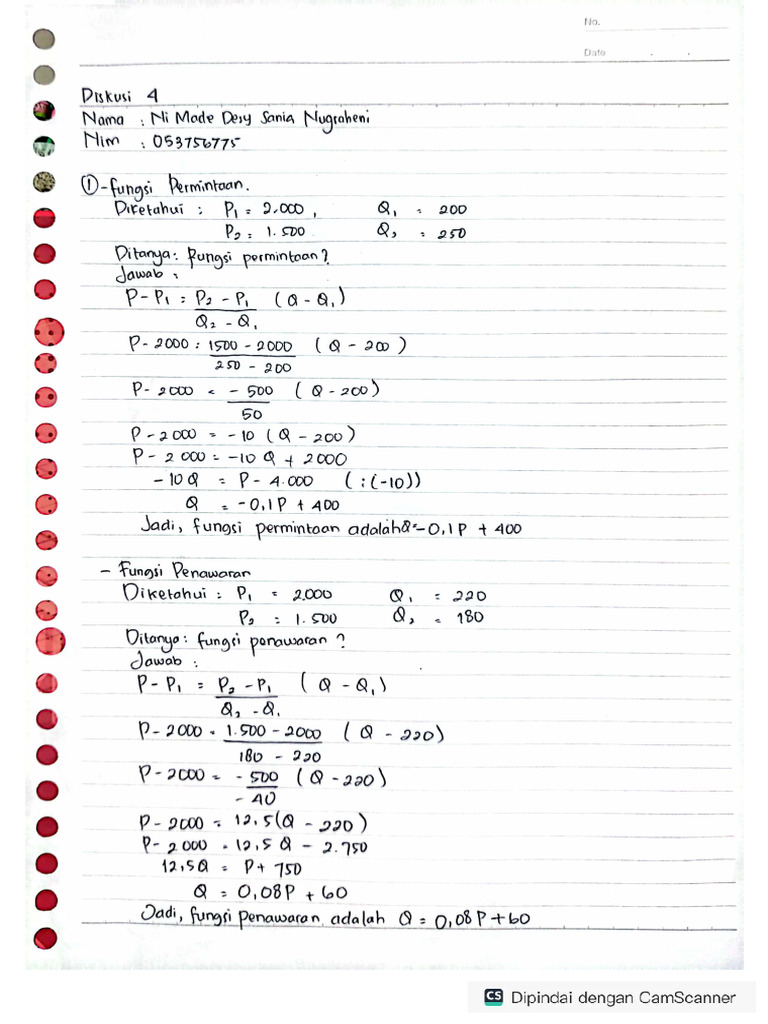 No.
Date
Diskusi 4
Nama : Ni Made Desy Sania Nugraheni
Nim : 053756775
① - Fungsi Permintaan.
Diketahui : P₁ = 2.000 , Q₁ = 200
P₂ = 1.500 Q₂ = 250
Ditanya : Fungsi permintaan ?
Jawab :
P - P₁ = P₂ - P₁ ( Q - Q₁ )
Q₂ - Q₁
P - 2000 = 1500 - 2000 ( Q - 200 )
250 - 200
P - 2000 = - 500 ( Q - 200 )
50
P - 2000 = -10 ( Q - 200 )
P - 2000 = -10 Q + 2000
- 10 Q = P - 4.000 ( : (-10))
Q = -0,1 P + 400
Jadi, fungsi permintaan adalah Q = -0,1 P + 400
- Fungsi Penawaran
Diketahui : P₁ = 2.000 Q₁ = 220
P₂ = 1.500 Q₂ = 180
Ditanya : fungsi penawaran ?
Jawab :
P - P₁ = P₂ - P₁ ( Q - Q₁ )
Q₂ - Q₁
P - 2000 = 1.500 - 2000 ( Q - 220 )
180 - 220
P - 2000 = - 500 ( Q - 220 )
- 40
P - 2000 = 12,5 ( Q - 220 )
P - 2000 = 12,5 Q - 2.750
12,5 Q = P + 750
Q = 0,08 P + 60
Jadi, fungsi penawaran adalah Q = 0,08 P + 60
CS Dipindai dengan CamScanner